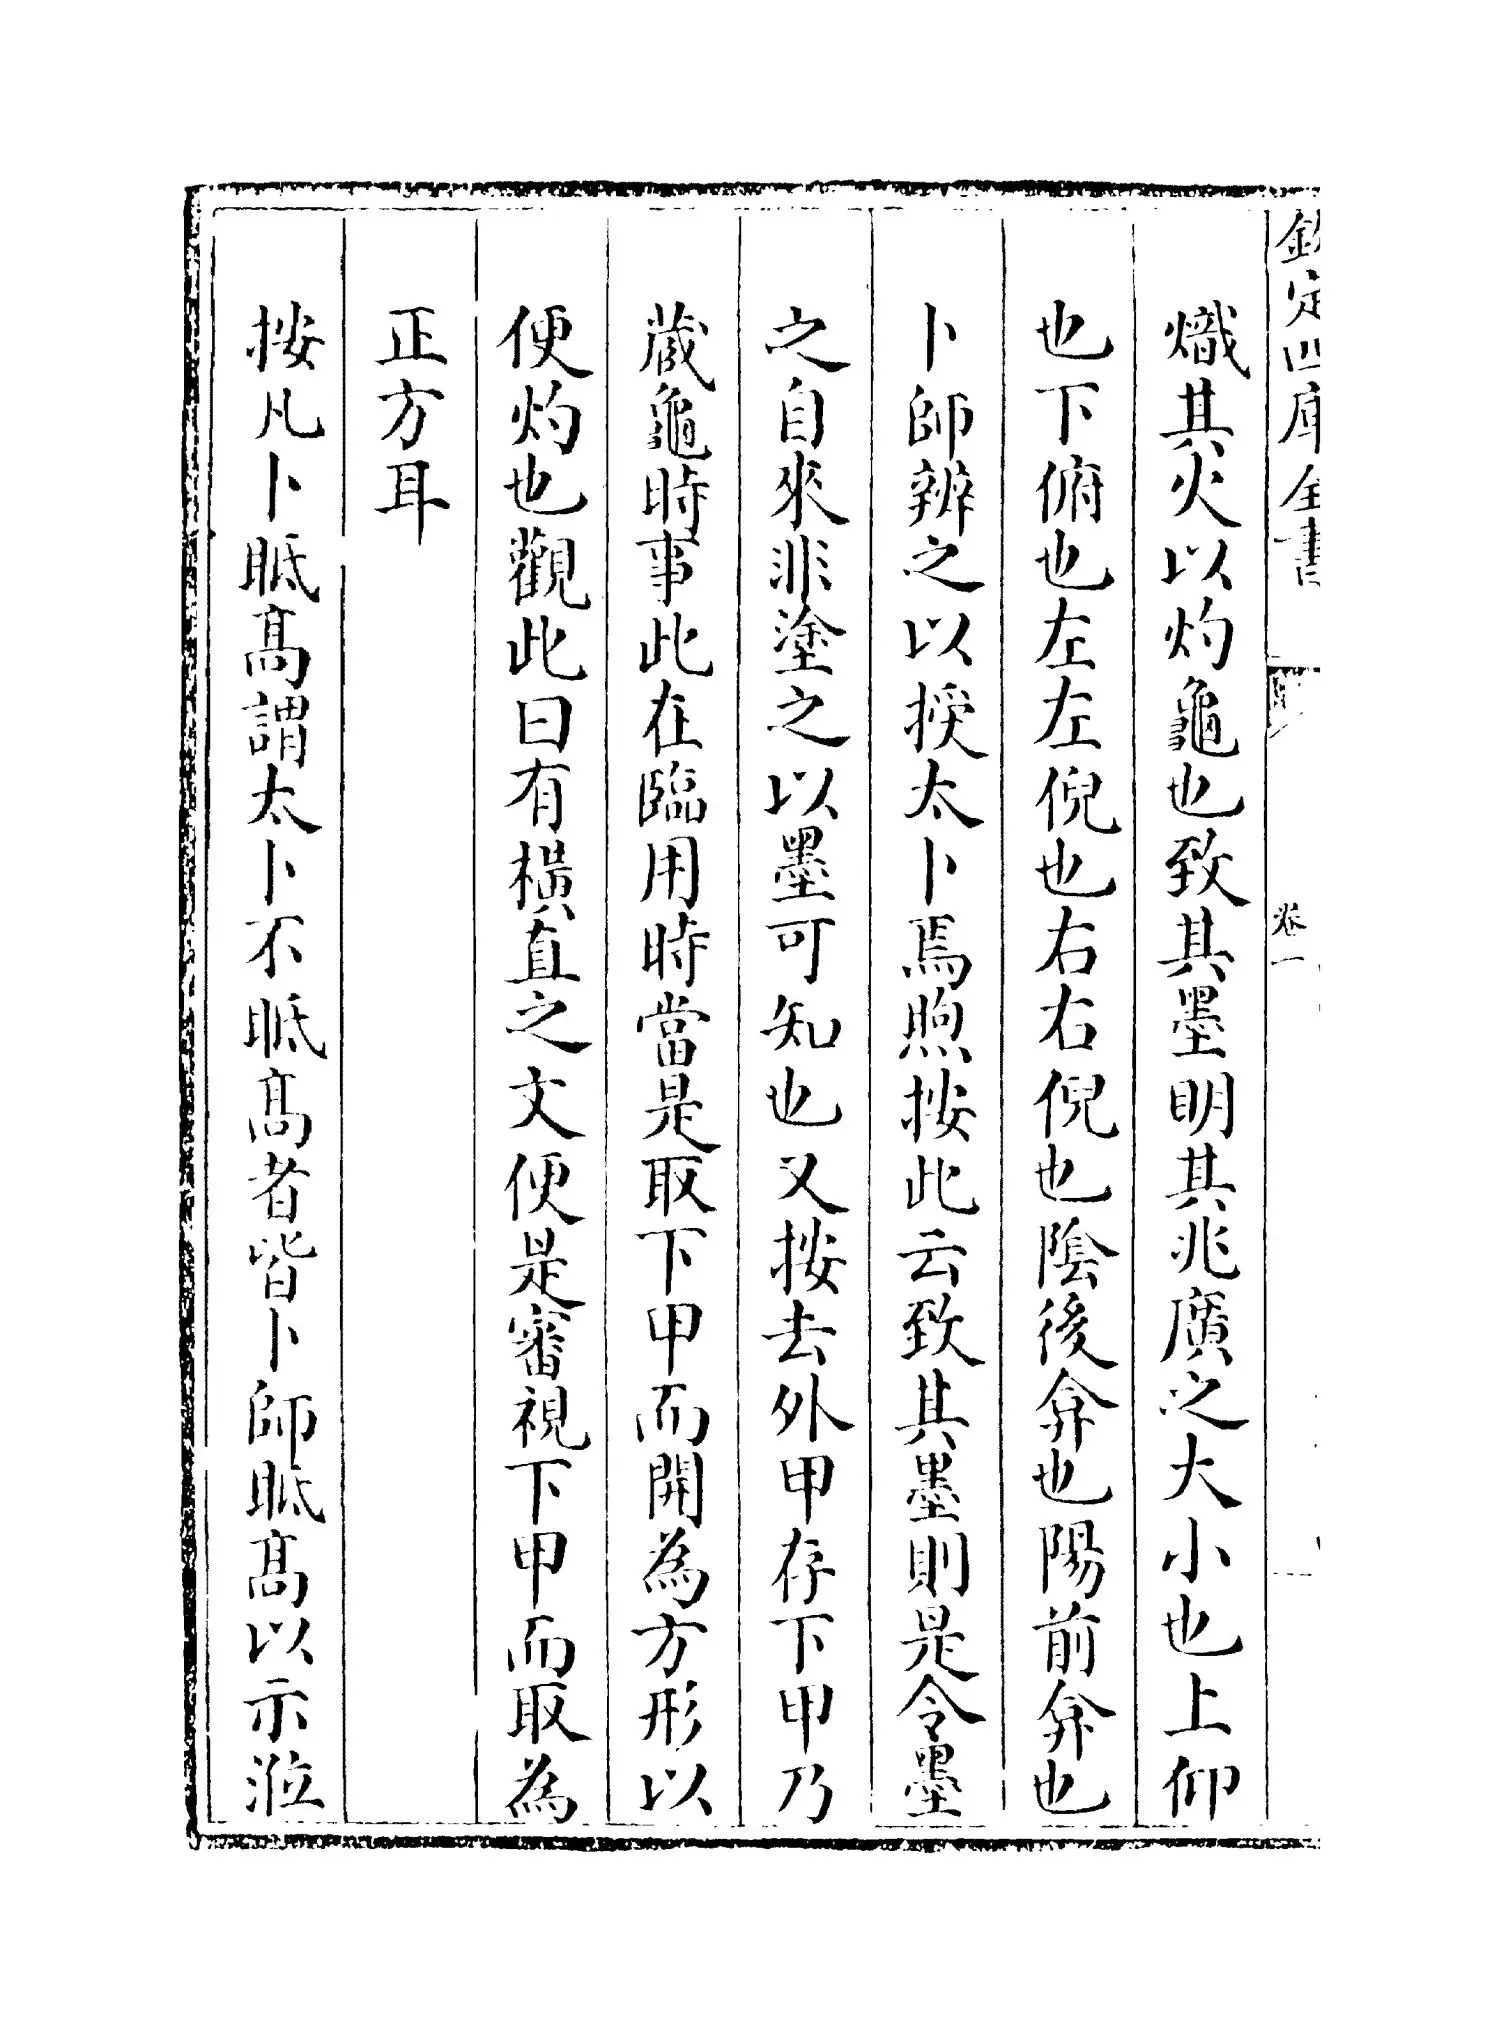 欽定四庫全書
卷一
熾其火以灼龜也致其墨明其兆廣之大小也上仰
也下俯也左左倪也右右倪也陰後弇也陽前弇也
卜師辨之以授太卜焉煦按此云致其墨則是令墨
之自來非塗之以墨可知也又按去外甲存下甲乃
蔵龜時事此在臨用時當是取下甲而開為方形以
便灼也觀此曰有橫直之文便是審視下甲而取為
正方耳
按凡卜眡髙謂太卜不眡髙者皆卜師眡髙以示涖